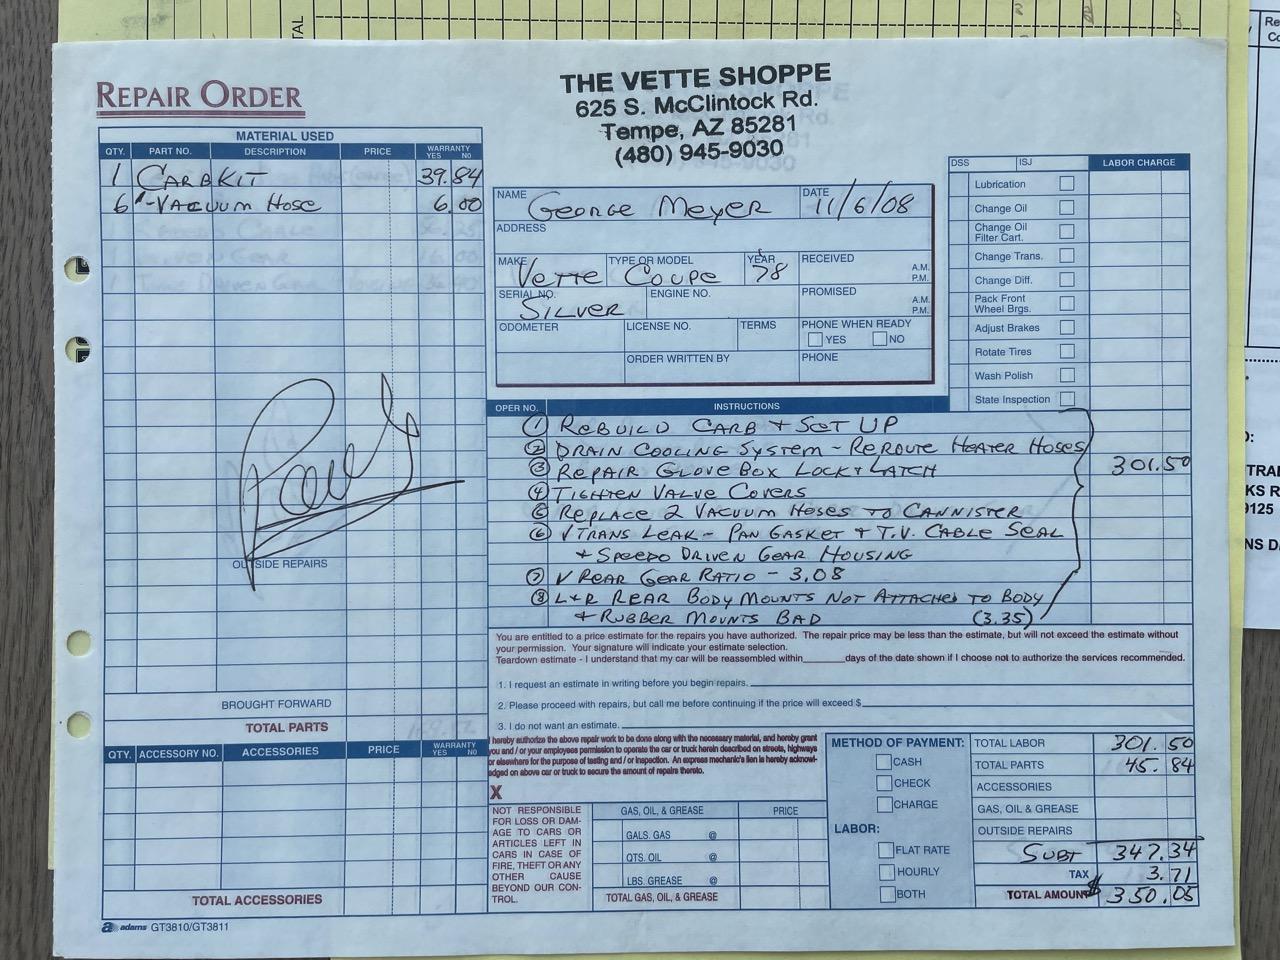 REPAIR ORDER
THE VETTE SHOPPE
625 S. McClintock Rd.
Tempe, AZ 85281
(480) 945-9030
MATERIAL USED
QTY. PART NO. DESCRIPTION PRICE WARRANTY YES NO
1 CARB KIT 39.84
6" - VACUUM HOSE 6.00
OUTSIDE REPAIRS
BROUGHT FORWARD
TOTAL PARTS
QTY. ACCESSORY NO. ACCESSORIES PRICE WARRANTY YES NO
TOTAL ACCESSORIES
adams GT3810/GT3811
NAME GEORGE MEYER DATE 11/6/08
ADDRESS
MAKE VETTE TYPE OR MODEL COUPE YEAR 78 RECEIVED A.M. P.M.
SERIAL NO. SILVER ENGINE NO. PROMISED A.M. P.M.
ODOMETER LICENSE NO. TERMS PHONE WHEN READY YES NO
ORDER WRITTEN BY PHONE
DSS ISJ LABOR CHARGE
Lubrication
Change Oil
Change Oil Filter Cart.
Change Trans.
Change Diff.
Pack Front Wheel Brgs.
Adjust Brakes
Rotate Tires
Wash Polish
State Inspection
OPER NO. INSTRUCTIONS
① REBUILD CARB + SET UP
② DRAIN COOLING SYSTEM - REROUTE HEATER HOSES
③ REPAIR GLOVE BOX LOCK + LATCH 301.50
④ TIGHTEN VALVE COVERS
⑤ REPLACE 2 VACUUM HOSES TO CANNISTER
⑥ √ TRANS LEAK - PAN GASKET + T.V. CABLE SEAL
+ SPEEDO DRIVEN GEAR HOUSING
⑦ √ REAR GEAR RATIO - 3.08
⑧ L+R REAR BODY MOUNTS NOT ATTACHED TO BODY
+ RUBBER MOUNTS BAD (3.35)
You are entitled to a price estimate for the repairs you have authorized. The repair price may be less than the estimate, but will not exceed the estimate without
your permission. Your signature will indicate your estimate selection.
Teardown estimate - I understand that my car will be reassembled within______days of the date shown if I choose not to authorize the services recommended.
1. I request an estimate in writing before you begin repairs.
2. Please proceed with repairs, but call me before continuing if the price will exceed $
3. I do not want an estimate.
I hereby authorize the above repair work to be done along with the necessary material, and hereby grant
you and / or your employees permission to operate the car or truck herein described on streets, highways
or elsewhere for the purpose of testing and / or inspection. An express mechanic's lien is hereby acknowl-
edged on above car or truck to secure the amount of repairs thereto.
X
NOT RESPONSIBLE
FOR LOSS OR DAM-
AGE TO CARS OR
ARTICLES LEFT IN
CARS IN CASE OF
FIRE, THEFT OR ANY
OTHER CAUSE
BEYOND OUR CON-
TROL.
GAS, OIL, & GREASE PRICE
GALS. GAS @
QTS. OIL @
LBS. GREASE @
TOTAL GAS, OIL, & GREASE
METHOD OF PAYMENT:
CASH
CHECK
CHARGE
LABOR:
FLAT RATE
HOURLY
BOTH
TOTAL LABOR 301.50
TOTAL PARTS 45.84
ACCESSORIES
GAS, OIL & GREASE
OUTSIDE REPAIRS
SUBT 347.34
TAX 3.71
TOTAL AMOUNT $ 350.05